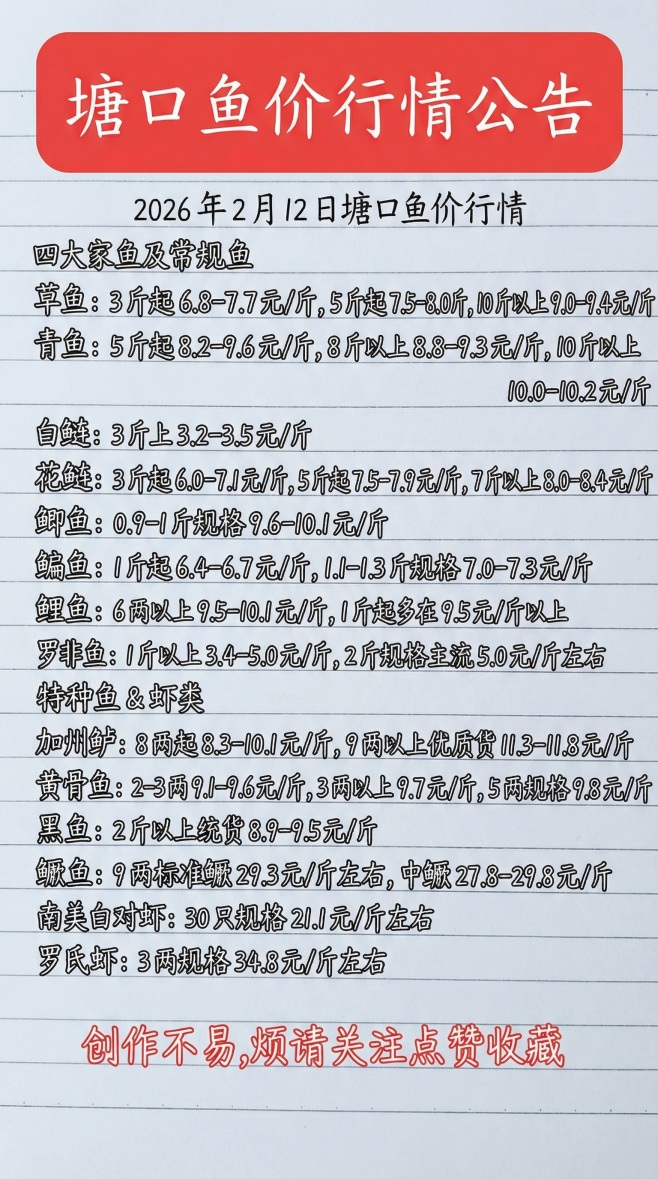 塘口鱼价行情公告
2026年2月12日塘口鱼价行情
四大家鱼及常规鱼
草鱼：3斤起6.8-7.7元/斤，5斤起7.5-8.0斤，10斤以上9.0-9.4元/斤
青鱼：5斤起8.2-9.6元/斤，8斤以上8.8-9.3元/斤，10斤以上
10.0-10.2元/斤
白鲢：3斤上3.2-3.5元/斤
花鲢：3斤起6.0-7.1元/斤，5斤起7.5-7.9元/斤，7斤以上8.0-8.4元/斤
鲫鱼：0.9-1斤规格9.6-10.1元/斤
鳊鱼：1斤起6.4-6.7元/斤，1.1-1.3斤规格7.0-7.3元/斤
鲤鱼：6两以上9.5-10.1元/斤，1斤起多在9.5元/斤以上
罗非鱼：1斤以上3.4-5.0元/斤，2斤规格主流5.0元/斤左右
特种鱼&虾类
加州鲈：8两起8.3-10.1元/斤，9两以上优质货11.3-11.8元/斤
黄骨鱼：2-3两9.1-9.6元/斤，3两以上9.7元/斤，5两规格9.8元/斤
黑鱼：2斤以上统货8.9-9.5元/斤
鳜鱼：9两标准鳜29.3元/斤左右，中鳜27.8-29.8元/斤
南美白对虾：30只规格21.1元/斤左右
罗氏虾：3两规格34.8元/斤左右
创作不易,烦请关注点赞收藏